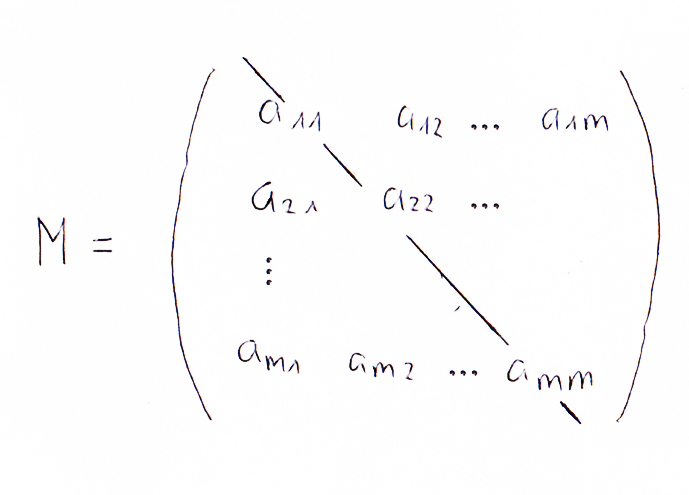 a11 a12 ... a1m
a21 a22 ...
M =
⋮
am1 am2 ... amm